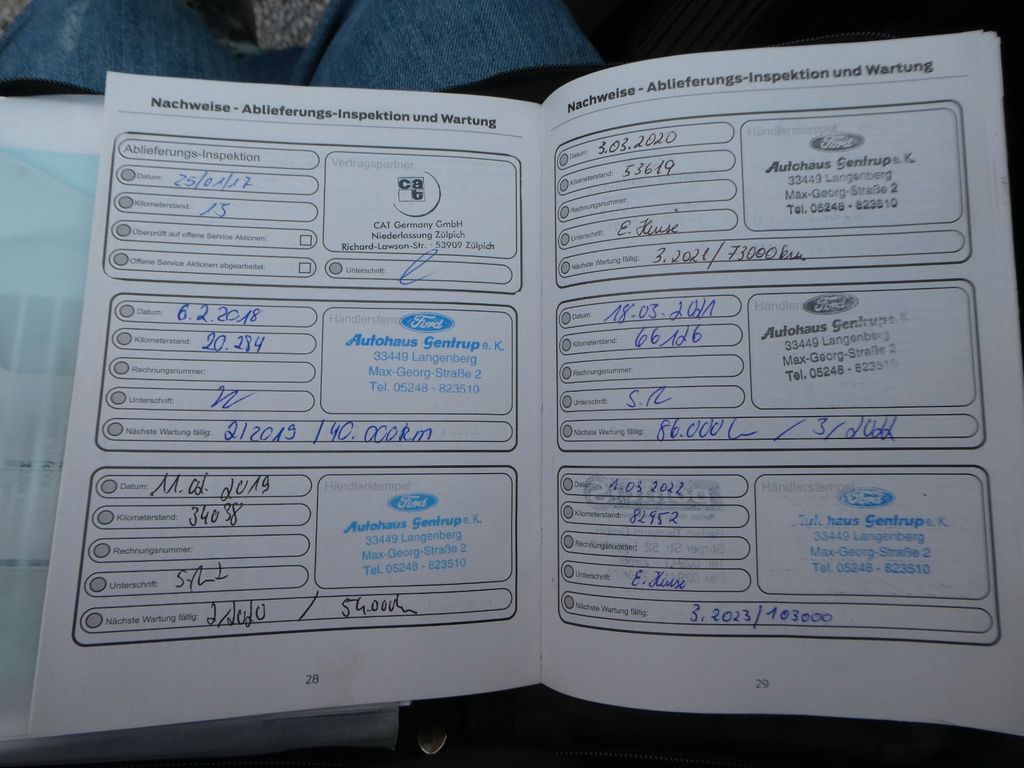 Nachweise - Ablieferungs-Inspektion und Wartung
Ablieferungs-Inspektion
Datum: 25/01/17
Kilometerstand: 15
Überprüft auf offene Service Aktionen:
Offene Service Aktionen abgearbeitet:
Vertragspartner
cat
CAT Germany GmbH
Niederlassung Zülpich
Richard-Lawson-Str. · 53909 Zülpich
Unterschrift:
Datum: 6.2.2018
Kilometerstand: 20.284
Rechnungsnummer:
Unterschrift:
Händlerstempel
Ford
Autohaus Gentrup e. K.
33449 Langenberg
Max-Georg-Straße 2
Tel. 05248 - 823510
Nächste Wartung fällig: 2/2019 / 40.000km
Datum: 11.02.2019
Kilometerstand: 34038
Rechnungsnummer:
Unterschrift:
Händlerstempel
Ford
Autohaus Gentrup e. K.
33449 Langenberg
Max-Georg-Straße 2
Tel. 05248 - 823510
Nächste Wartung fällig: 2/2020 / 54.000km
28
Nachweise - Ablieferungs-Inspektion und Wartung
Datum: 3.03.2020
Kilometerstand: 53619
Rechnungsnummer:
Unterschrift:
Händlerstempel
Ford
Autohaus Gentrup e. K.
33449 Langenberg
Max-Georg-Straße 2
Tel. 05248 - 823510
Nächste Wartung fällig: 3.2021/73000km
Datum: 18.03.2021
Kilometerstand: 66126
Rechnungsnummer:
Unterschrift:
Händler
Ford
Autohaus Gentrup e. K.
33449 Langenberg
Max-Georg-Straße 2
Tel. 05248 - 823510
Nächste Wartung fällig: 86.000 / 3/2022
Datum: 1.03.2022
Kilometerstand: 82952
Rechnungsnummer:
Unterschrift:
Händlerstempel
Ford
haus Gentrup e. K.
33449 Langenberg
Max-Georg-Straße 2
Tel. 05248 - 823510
Nächste Wartung fällig: 3.2023/103000
29